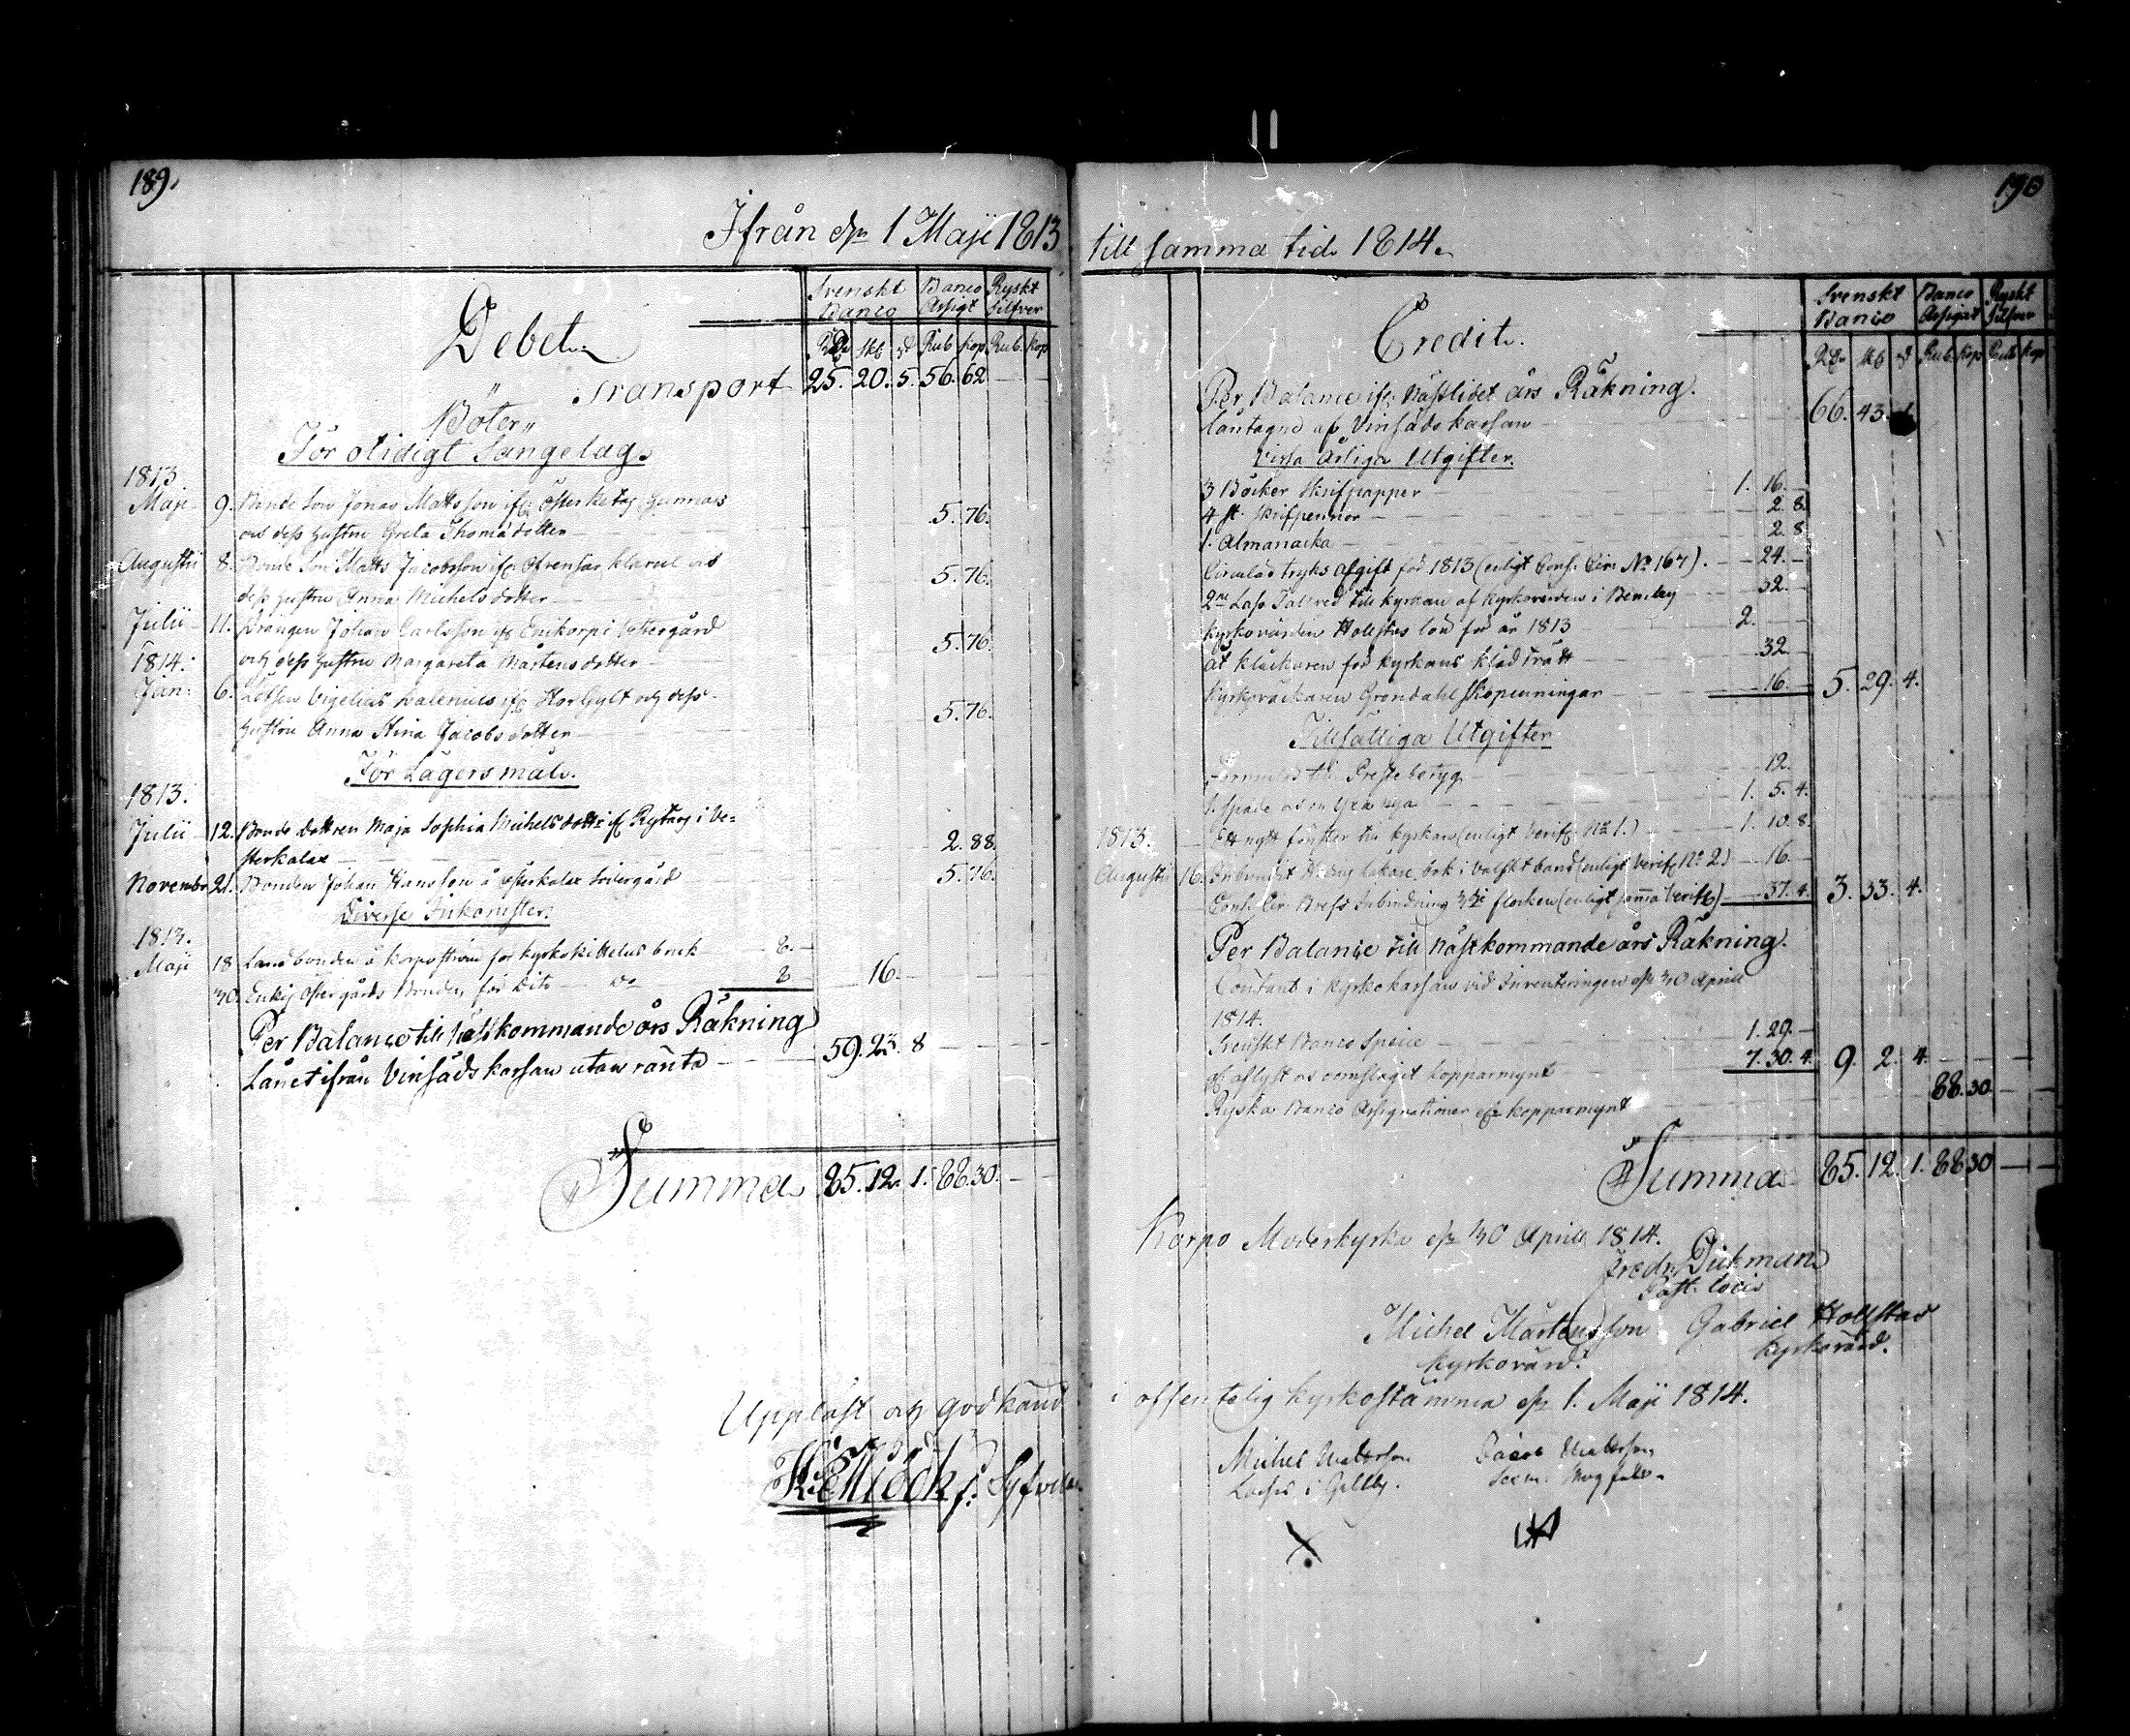 189.
Ifrån d: 1 Maji 1813
Debet.
Svenskt Banco
Banco Assigt
Ryskt Silfver
Rdr skb d Rub Kop Rub Kop
Transport 25. 20. 5. 56. 62 — —
Böter
För otidigt Sängelag.
1813.
Maji 9. Bonde Son Jonas Mattsson ifr. Österretag Gunnars
och dess hustru Greta Thomædotter — 5. 76.
Augusti 8. Bonde Son Matts Jacobsson ifr. klavul och
dess hustru Anna Michelsdotter — 5. 76.
Julii 11. Drängen Johan Carlsson ifr. Enikorpi Vestergård
och dess hustru Margareta Mårtensdotter — 5. 76.
1814.
Jan: 6. Lotsen Vigelius ifr. Storgylt och dess
hustru Anna Stina Jacobsdotter — 5. 76.
För Lägersmål.
1813.
Julii 12. Bonde dottren Maja Sophia Michelsdotter ifr. i Ve=
sterkalax — 2. 88.
Novembr 21. Bonden Johan Hansson å Österkalax Södergård — 5. 76.
Diverse Inkomster.
1813.
Maji 18 Landbonden å Korpoström för kyrkokittelns bruk — 8. —
30. Enkij Östergårds Bonden för Dito — Do — 8 — 16. —
Per Balance till Nästkommande års Räkning
Lånet ifrån Vinsäds kassan utan ränta — 59. 23. 8 — — — —
Summa. 85. 12. 1. 88. 30. — —
Uppläst och godkänd
190
till samma tid 1814.
Credit.
Svenskt Banco
Banco Assignat
Ryskt Silfver
Rdr skb d Rub Kop Rub Kop
Per Balance ifr. Nästlidet års Räkning.
låntagne af Vinsäds kassan — 66. 43.
Vissa Årliga Utgifter.
3 Böcker Skrifpapper — 1. 16. —
4 st. Skrifpennor — 2. 8.
1. Almanacka — 2. 8
Circulär tryks afgift för 1813 (enligt Cons. Cir. No 167). — 24. —
2ne Lass Tallved till kyrkan af kyrkovärden i — 32. —
kyrkovärden Hollstas lön för år 1813 — 2. —
åt klåckaren för kyrkans klädtvätt — 32 —
kyrkoväckaren Grondahl Skopenningar — 16. — 5. 29. 4.
Tillfälliga Utgifter
Formulär till Prestebetyg — 12. —
1. Spade och en Yxa nya — 1. 5. 4.
1813. Ett nytt fönster till kyrkan (enligt Verif. No 1.) — 1. 10. 8.
Augusti 16. bok i Valskt band (enligt Verif. No 2) — 16. —
Cons. Cir. Brefs Inbindning flocken (enligt samma Verif.) — 37. 4. 3. 33. 4.
Per Balance till Nästkommande års Räkning.
Contant i kyrkokassan vid Inventeringen d. 30 Aprill
1814.
Svenskt Banco Specie — 1. 29. —
af aflyst och omslagit kopparmynt — 7. 30. 4. 9. 2. 4. — — — —
Ryska Banco Assignationer och kopparmynt — 88. 30. — —
Summa 85. 12. 1. 88 30 — —
Korpo Moderkyrka d. 30 Aprill 1814.
Fredr. Dickman
Past. loci
Michel Mårtensson Gabriel Hollstas
kyrkovärd. kyrkovärd.
i offentelig kyrkostämma d. 1. Maji 1814.
Michel
i Gyllby.
Jacob